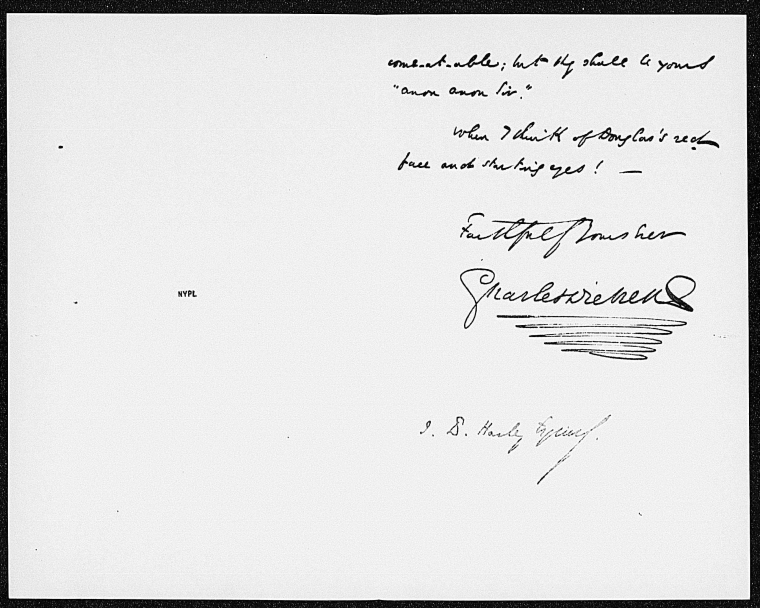 come-at-able; but they shall be yours
"anon anon Sir."
When I think of Douglas's red
face and starting eyes! —
Faithfully Yours Ever
Charles Dickens
NYPL
J. P. Harley Esquire.